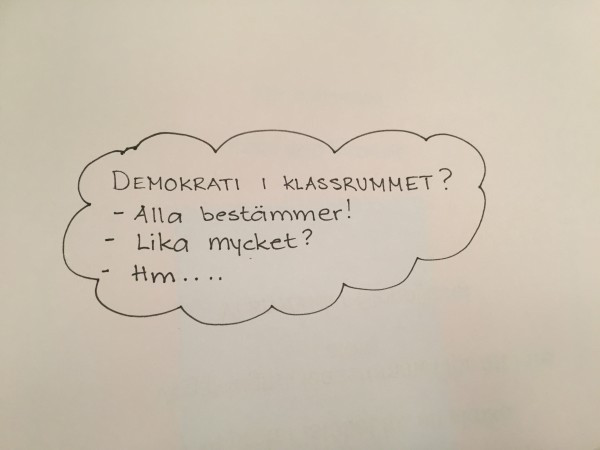 DEMOKRATI I KLASSRUMMET?
- Alla bestämmer!
- Lika mycket?
- Hm....